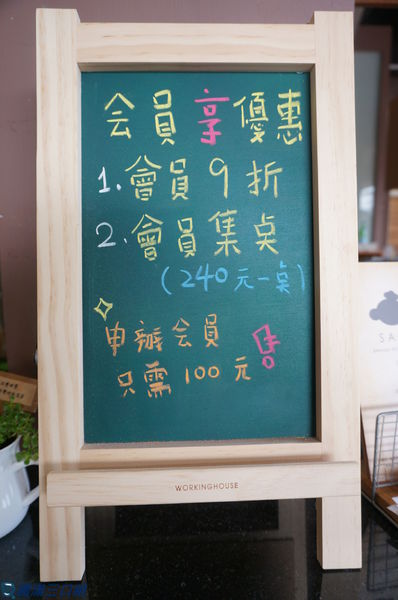 会員享優惠
1.會員9折
2.會員集点
(240元一点)
申辦会員
只需100元
WORKINGHOUSE
SA